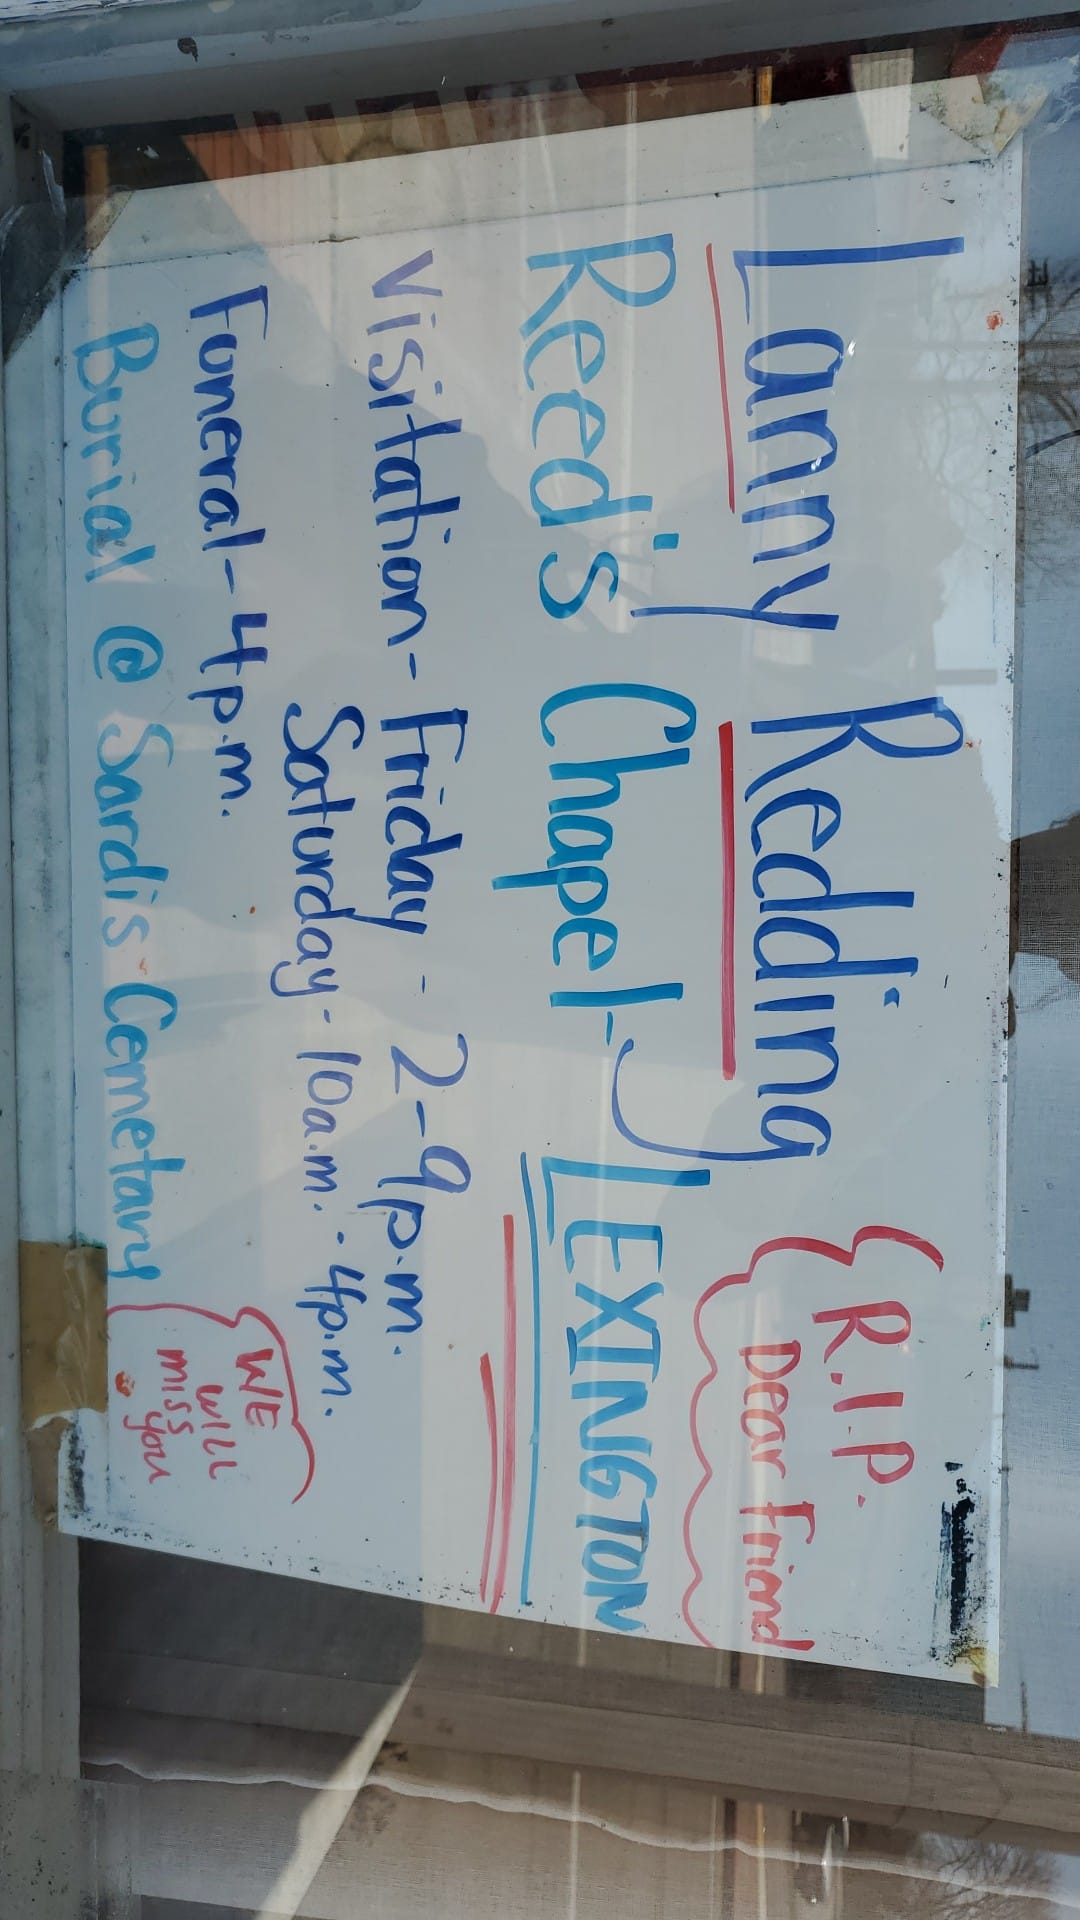 Lanny Redding
R.I.P.
Dear Friend
Reed's Chapel - LEXINGTON
Visitation - Friday - 2-9p.m.
Saturday - 10a.m. - 4p.m.
Funeral - 4p.m.
Burial @ Sardis Cemetary
WE
will
miss
you